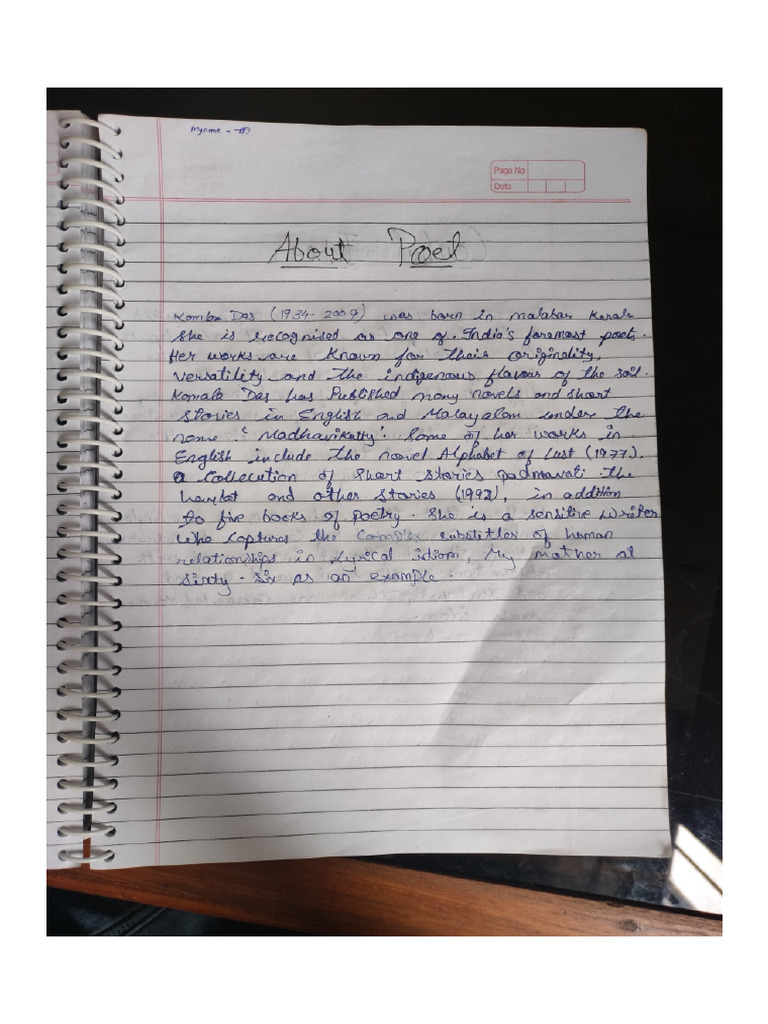 Myname -
Page No
Date
About Poet
Kamla Das (1934-2009) was born in malabar Kerala
She is recognised as one of India's foremost poets.
Her works are known for their originality,
versatility and the indigenous flavour of the soil.
Kamala Das has Published many novels and short
stories in English and Malayalam under the
name 'Madhavikutty'. Some of her works in
English include the novel Alphabet of Lust (1977),
a collecution of short stories padmavati the
harlot and other stories (1992), in addition
to five books of poetry. She is a sensitive writer
who captures the complex substitles of human
relationships in Lyrical idiom, My mother at
sixty-six as an example.